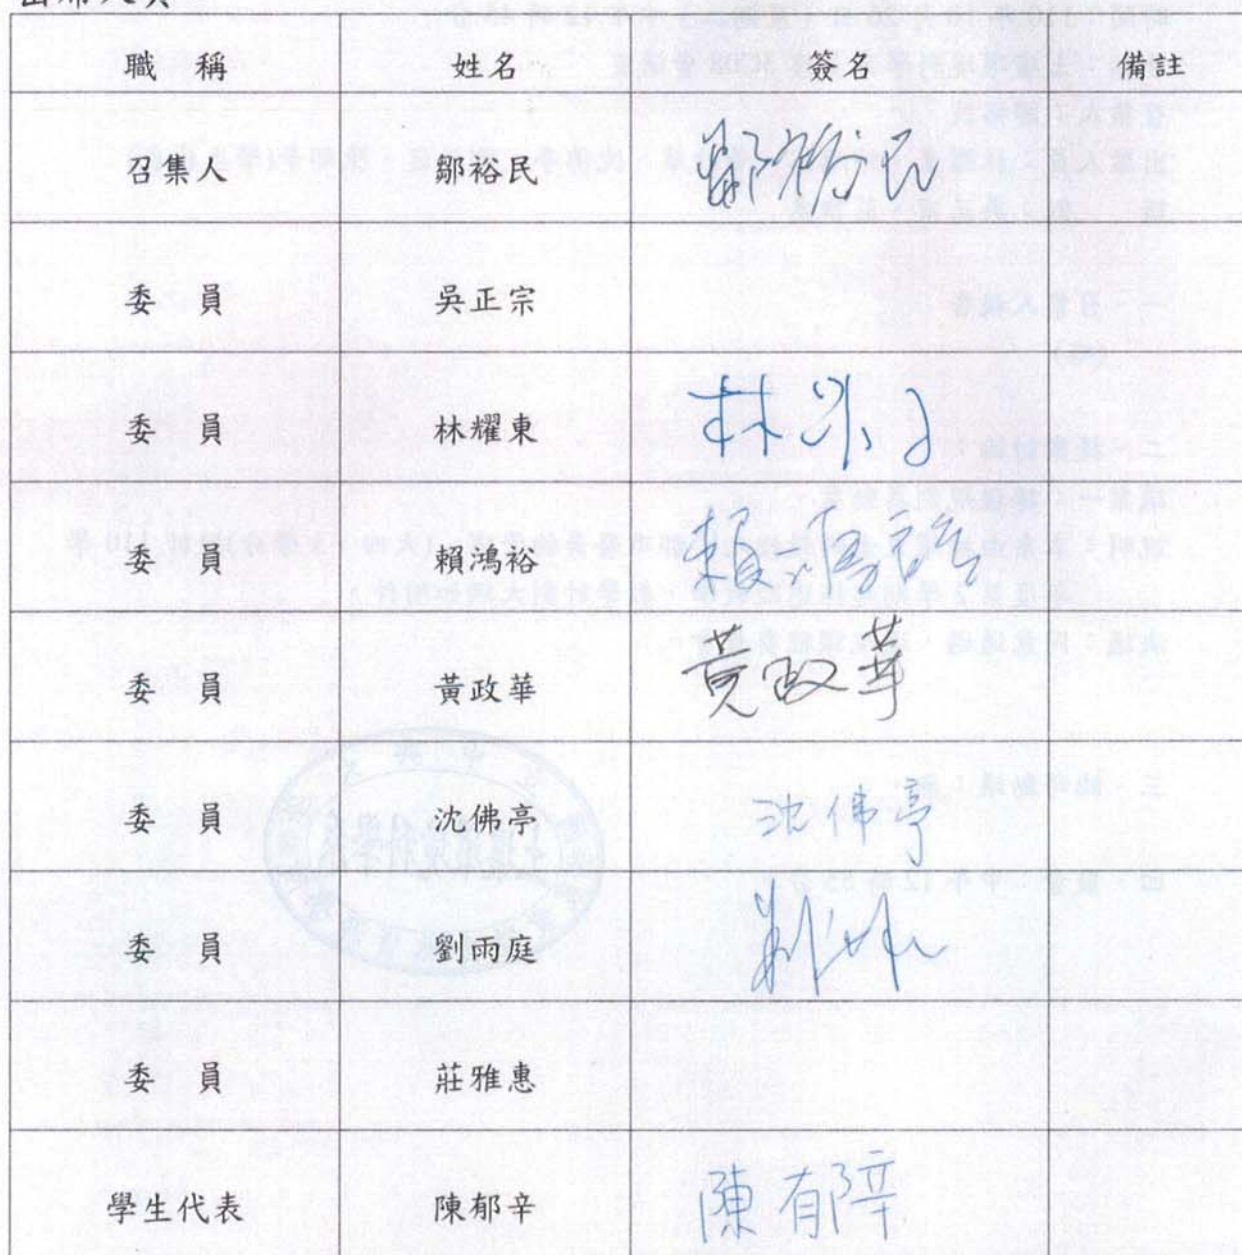 出席人員
職 稱 姓名 簽名 備註
召集人 鄒裕民 鄒裕民
委 員 吳正宗
委 員 林耀東 林
委 員 賴鴻裕 賴鴻裕
委 員 黃政華 黃政華
委 員 沈佛亭 沈佛亭
委 員 劉雨庭 劉
委 員 莊雅惠
學生代表 陳郁辛 陳郁辛